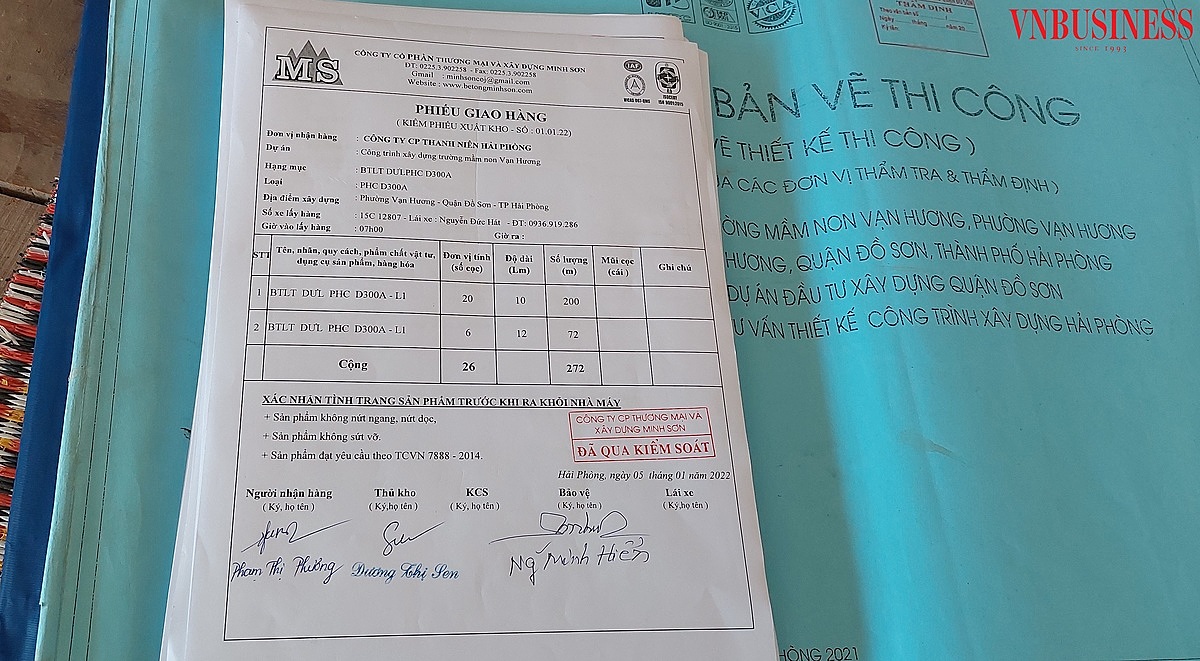 VNBUSINESS
SINCE 1993
MS
CÔNG TY CỔ PHẦN THƯƠNG MẠI VÀ XÂY DỰNG MINH SƠN
ĐT: 0225.3.902258 - Fax: 0225.3.902258
Gmail : minhsoncoj@gmail.com
Website : www.betongminhson.com
IAF
VICAS 067-QMS
ISOCERT
ISO 9001:2015
PHIẾU GIAO HÀNG
( KIÊM PHIẾU XUẤT KHO - SỐ : 01.01.22)
Đơn vị nhận hàng : CÔNG TY CP THANH NIÊN HẢI PHÒNG
Dự án : Công trình xây dựng trường mầm non Vạn Hương
Hạng mục : BTLT DƯLPHC D300A
Loại : PHC D300A
Địa điểm xây dựng : Phường Vạn Hương - Quận Đồ Sơn - TP Hải Phòng
Số xe lấy hàng : 15C 12807 - Lái xe : Nguyễn Đức Hát - ĐT: 0936.919.286
Giờ vào lấy hàng : 07h00 Giờ ra :
STT Tên, nhãn, quy cách, phẩm chất vật tư, dụng cụ sản phẩm, hàng hóa Đơn vị tính (số cọc) Độ dài (Lm) Số lượng (m) Mũi cọc (cái) Ghi chú
1 BTLT DƯL PHC D300A - L1 20 10 200
2 BTLT DƯL PHC D300A - L1 6 12 72
Cộng 26 272
XÁC NHẬN TÌNH TRẠNG SẢN PHẨM TRƯỚC KHI RA KHỎI NHÀ MÁY
+ Sản phẩm không nứt ngang, nứt dọc,
+ Sản phẩm không sứt vỡ.
+ Sản phẩm đạt yêu cầu theo TCVN 7888 - 2014.
CÔNG TY CP THƯƠNG MẠI VÀ
XÂY DỰNG MINH SƠN
ĐÃ QUA KIỂM SOÁT
Hải Phòng, ngày 05 tháng 01 năm 2022
Người nhận hàng Thủ kho KCS Bảo vệ Lái xe
( Ký, họ tên ) ( Ký,họ tên ) ( Ký, họ tên ) ( Ký, họ tên ) ( Ký,họ tên )
Phạm Thị Phương Dương Thị Sen Ng Minh Hiển
THẨM ĐỊNH
VICA
BẢN VẼ THI CÔNG
VẼ THIẾT KẾ THI CÔNG )
CÁC ĐƠN VỊ THẨM TRA & THẨM ĐỊNH )
ỜNG MẦM NON VẠN HƯƠNG, PHƯỜNG VẠN HƯƠNG
HƯƠNG, QUẬN ĐỒ SƠN, THÀNH PHỐ HẢI PHÒNG
DỰ ÁN ĐẦU TƯ XÂY DỰNG QUẬN ĐỒ SƠN
Ư VẤN THIẾT KẾ CÔNG TRÌNH XÂY DỰNG HẢI PHÒNG
HÒNG 2021